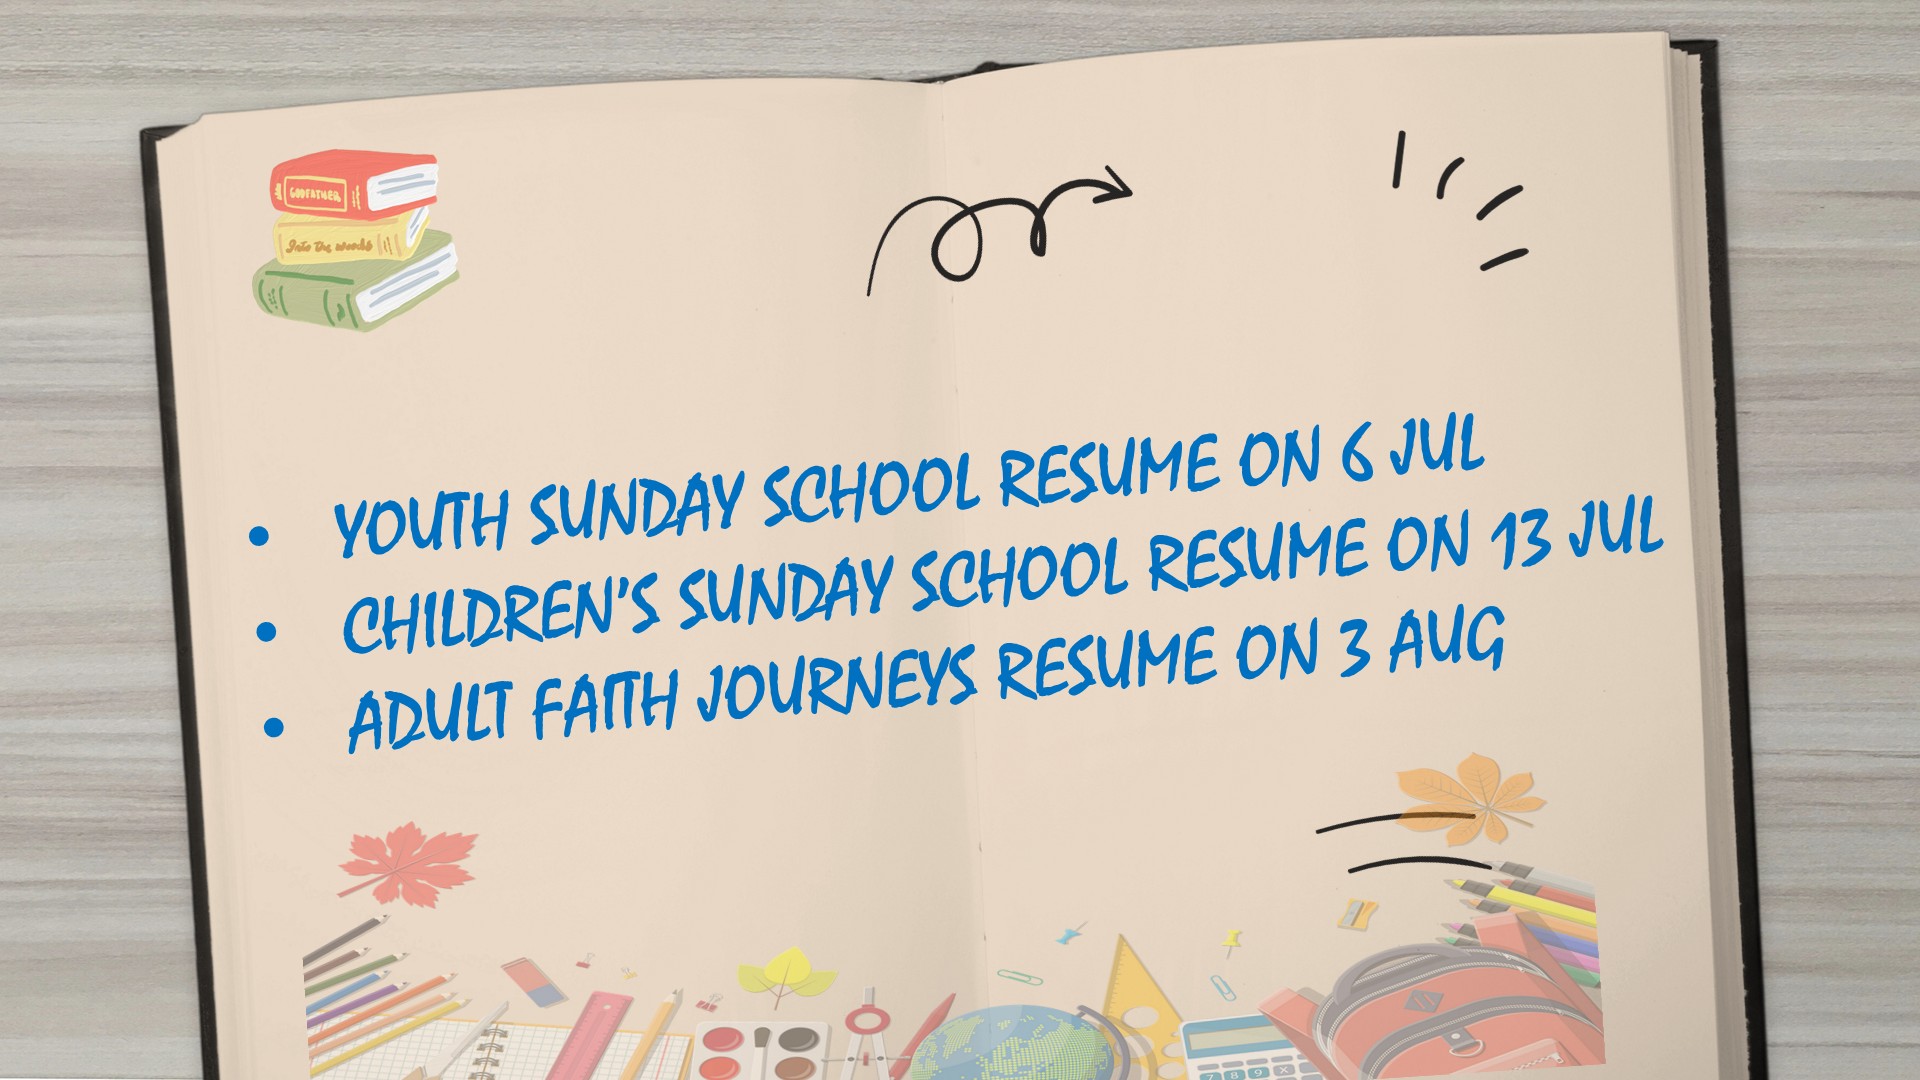 GODFATHER
Into the woods
• YOUTH SUNDAY SCHOOL RESUME ON 6 JUL
• CHILDREN'S SUNDAY SCHOOL RESUME ON 13 JUL
• ADULT FAITH JOURNEYS RESUME ON 3 AUG
7 8 9 X